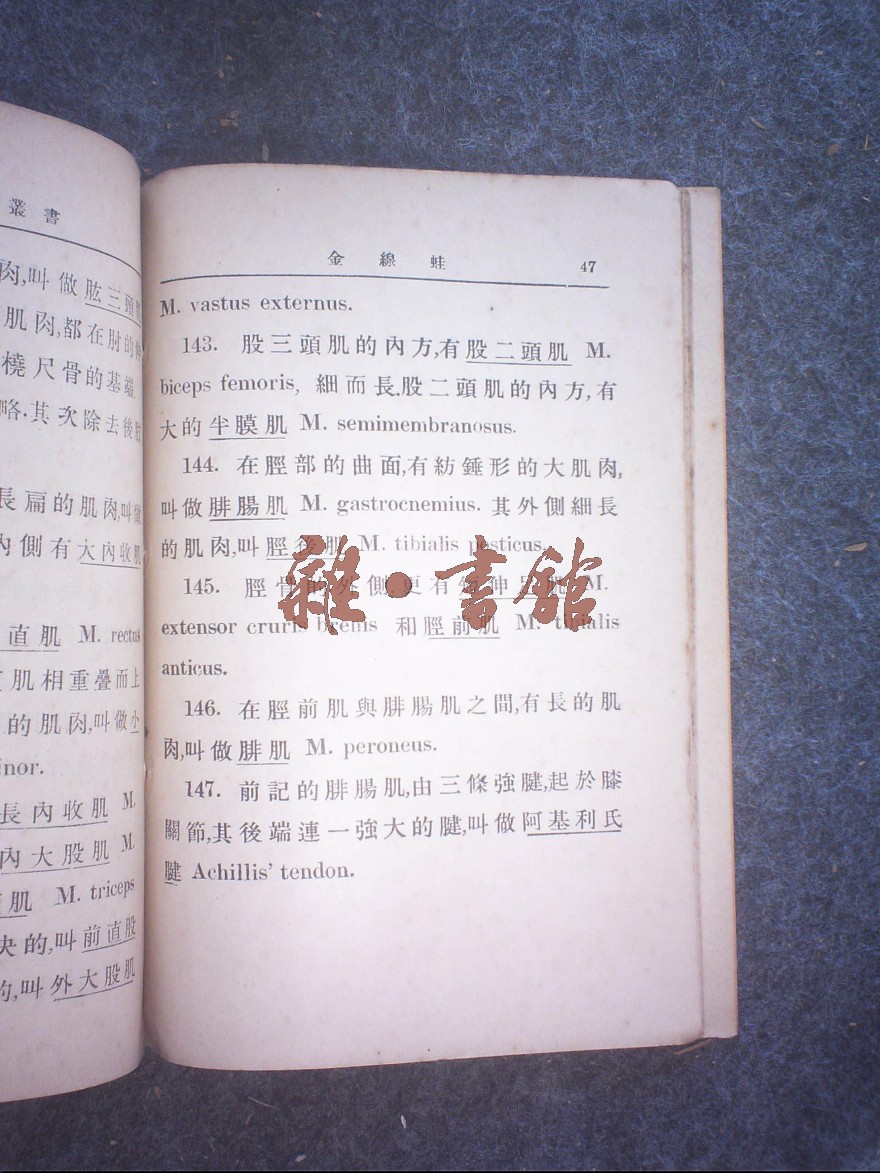 叢書
肉,叫做肱三頭
肌肉,都在肘的
橈尺骨的基端.
略.其次除去後
長扁的肌肉,叫做
內側有大內收肌
直肌 M. rectus
肌相重疊而上
的肌肉,叫做小
inor.
長內收肌 M.
內大股肌 M.
肌 M. triceps
的,叫前直股
的,叫外大股肌
金線蛙 47
M. vastus externus.
143. 股三頭肌的內方,有股二頭肌 M.
biceps femoris, 細而長.股二頭肌的內方,有
大的半膜肌 M. semimembranosus.
144. 在脛部的曲面,有紡錘形的大肌肉,
叫做腓腸肌 M. gastrocnemius. 其外側細長
的肌肉,叫脛後肌 M. tibialis posticus.
145. 脛骨的外側,更有 伸 肌 M.
extensor cruris brevis 和脛前肌 M. tibialis
anticus.
146. 在脛前肌與腓腸肌之間,有長的肌
肉,叫做腓肌 M. peroneus.
147. 前記的腓腸肌,由三條強腱,起於膝
關節,其後端連一強大的腱,叫做阿基利氏
腱 Achillis' tendon.
雜·書館